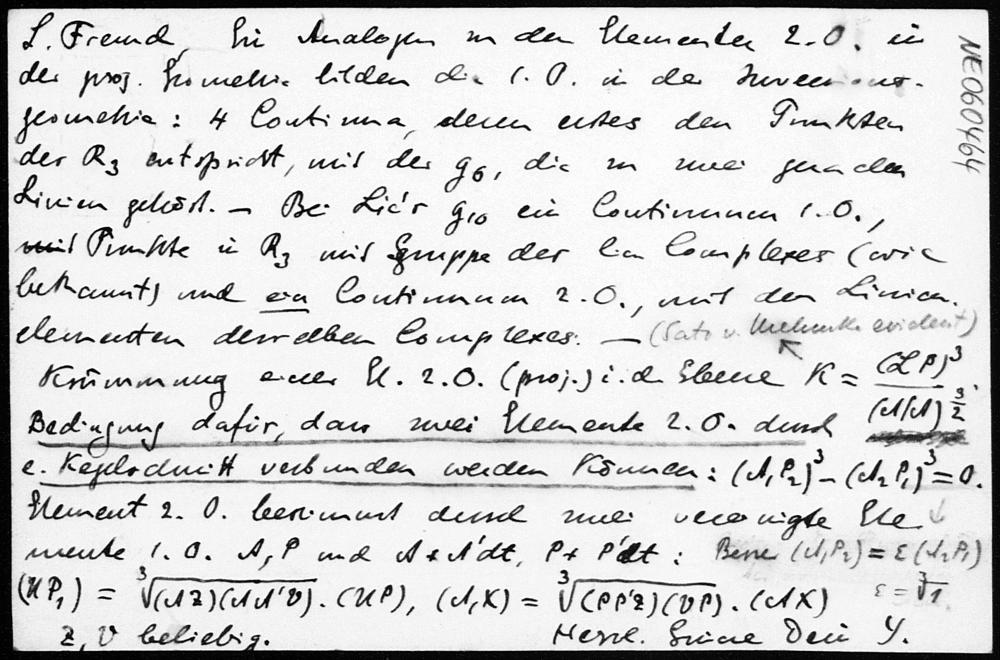 L. Freund, Ein Analogon zu den Elementen 2.O. in
der proj. Geometrie bilden die 1.O. in der Inversions-
geometrie: 4 Continua, deren erstes den Punkten
der R₃ entspricht, mit der g₆, die zu zwei geraden
Linien gehört. — Bei Lie's g₁₀ ein Continuum 1.O.,
Punkte in R₃ mit Gruppe des lin Complexes (wie
bekannt) und ein Continuum 2.O., mit den Linien-
elementen desselben Complexes. — (Satz v. Mehmke evident)
Krümmung eines El. 2.O. (proj.) i.d. Ebene K = (𝓛P)³ / (A/A)^{3/2}
Bedingung dafür, dass zwei Elemente 2.O. durch
e. Kegelschnitt verbunden werden können: (A₁P₂)³ − (A₂P₁)³ = 0.
Element 2.O. bestimmt durch zwei vereinigte Ele ↓
mente 1.O. A, P und A + A'dt, P + P'dt: Besser (A₁P₂) = ε(A₂P₁)
(UP₁) = ∛(AZ)(AA'V) . (UP), (A₁X) = ∛(PP'Z)(VP) . (AX) ε = ∛1
Z, V beliebig. Herzl. Grüsse Dein
NE060464